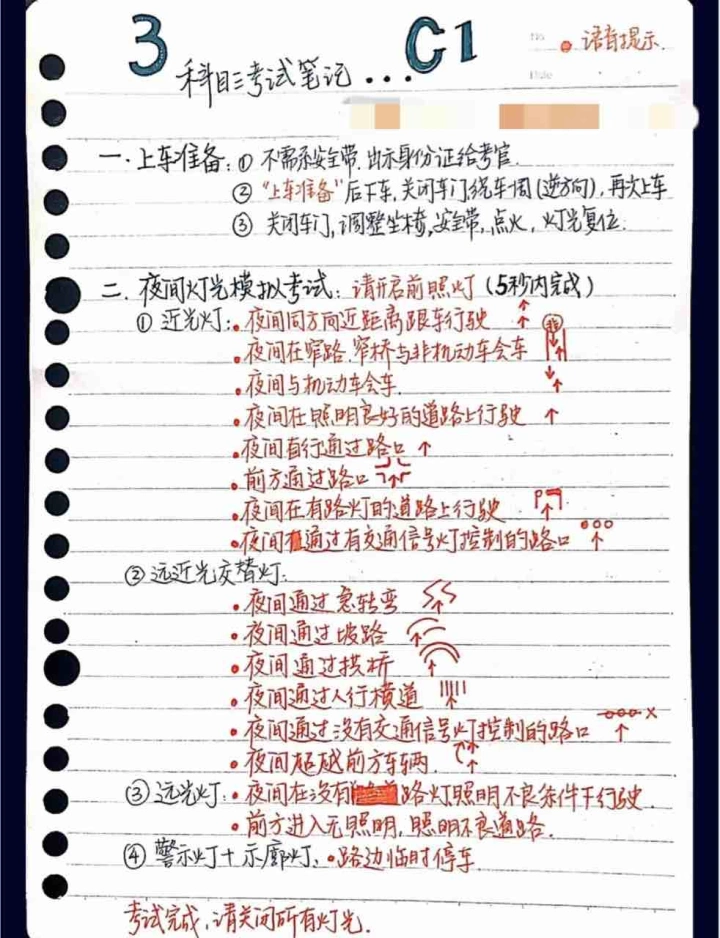 3 C1
No
● 语音提示
科目三考试笔记...
Date
一.上车准备:① 不需系安全带.出示身份证给考官.
② "上车准备"后下车,关闭车门绕车1周(逆方向),再次上车
③ 关闭车门,调整坐椅,安全带,点火,灯光复位.
二.夜间灯光模拟考试:请开启前照灯(5秒内完成)
① 近光灯:•夜间同方向近距离跟车行驶 ↑↑
•夜间在窄路.窄桥与非机动车会车 非 ↓↑
•夜间与机动车会车. ↓↑
•夜间在照明良好的道路上行驶 ↑
•夜间直行通过路口 ↑
•前方通过路口
•夜间在有路灯的道路上行驶 ↑
•夜间在通过有交通信号灯控制的路口 ↑
② 远近光交替灯:
•夜间通过急转弯
•夜间通过坡路
•夜间通过拱桥
•夜间通过人行横道
•夜间通过没有交通信号灯控制的路口 ↑ x
•夜间超越前方车辆.
③ 远光灯:•夜间在没有路灯照明不良条件下行驶.
•前方进入无照明,照明不良道路.
④ 警示灯+示廓灯:•路边临时停车
考试完成,请关闭所有灯光.